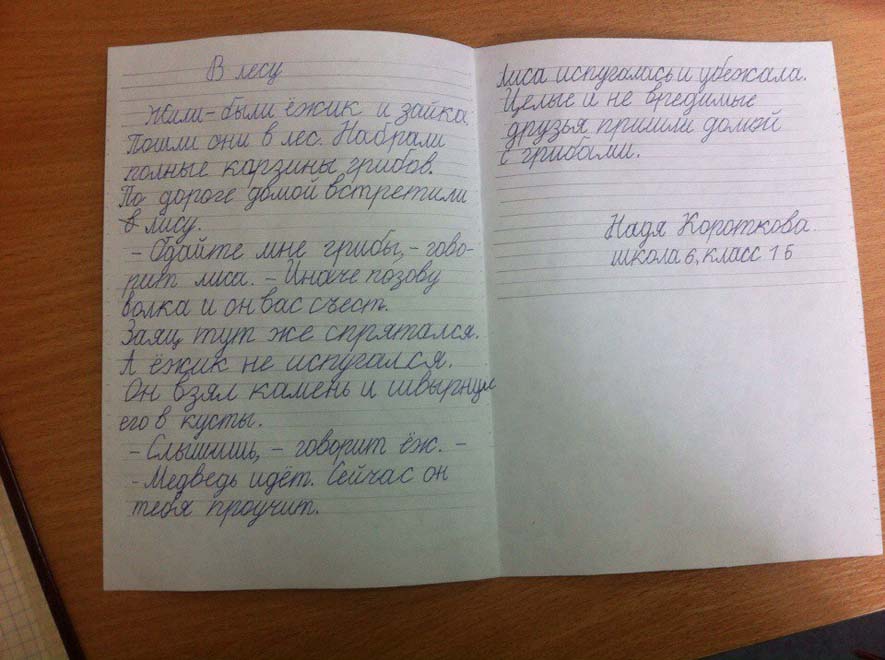 В лесу
Жили-были ёжик и зайка.
Пошли они в лес. Набрали
полные корзины грибов.
По дороге домой встретили
лису.
- Одайте мне грибы, - гово-
рит лиса. - Иначе позову
волка и он вас съест.
Заяц тут же спрятался.
А ёжик не испугался.
Он взял камень и швырнул
его в кусты.
- Слышишь, - говорит ёж. -
- Медведь идёт. Сейчас он
тебя проучит.
Лиса испугалась и убежала.
Целые и не вредимые
друзья пришли домой
с грибами.
Надя Короткова.
школа 6, класс 1 Б